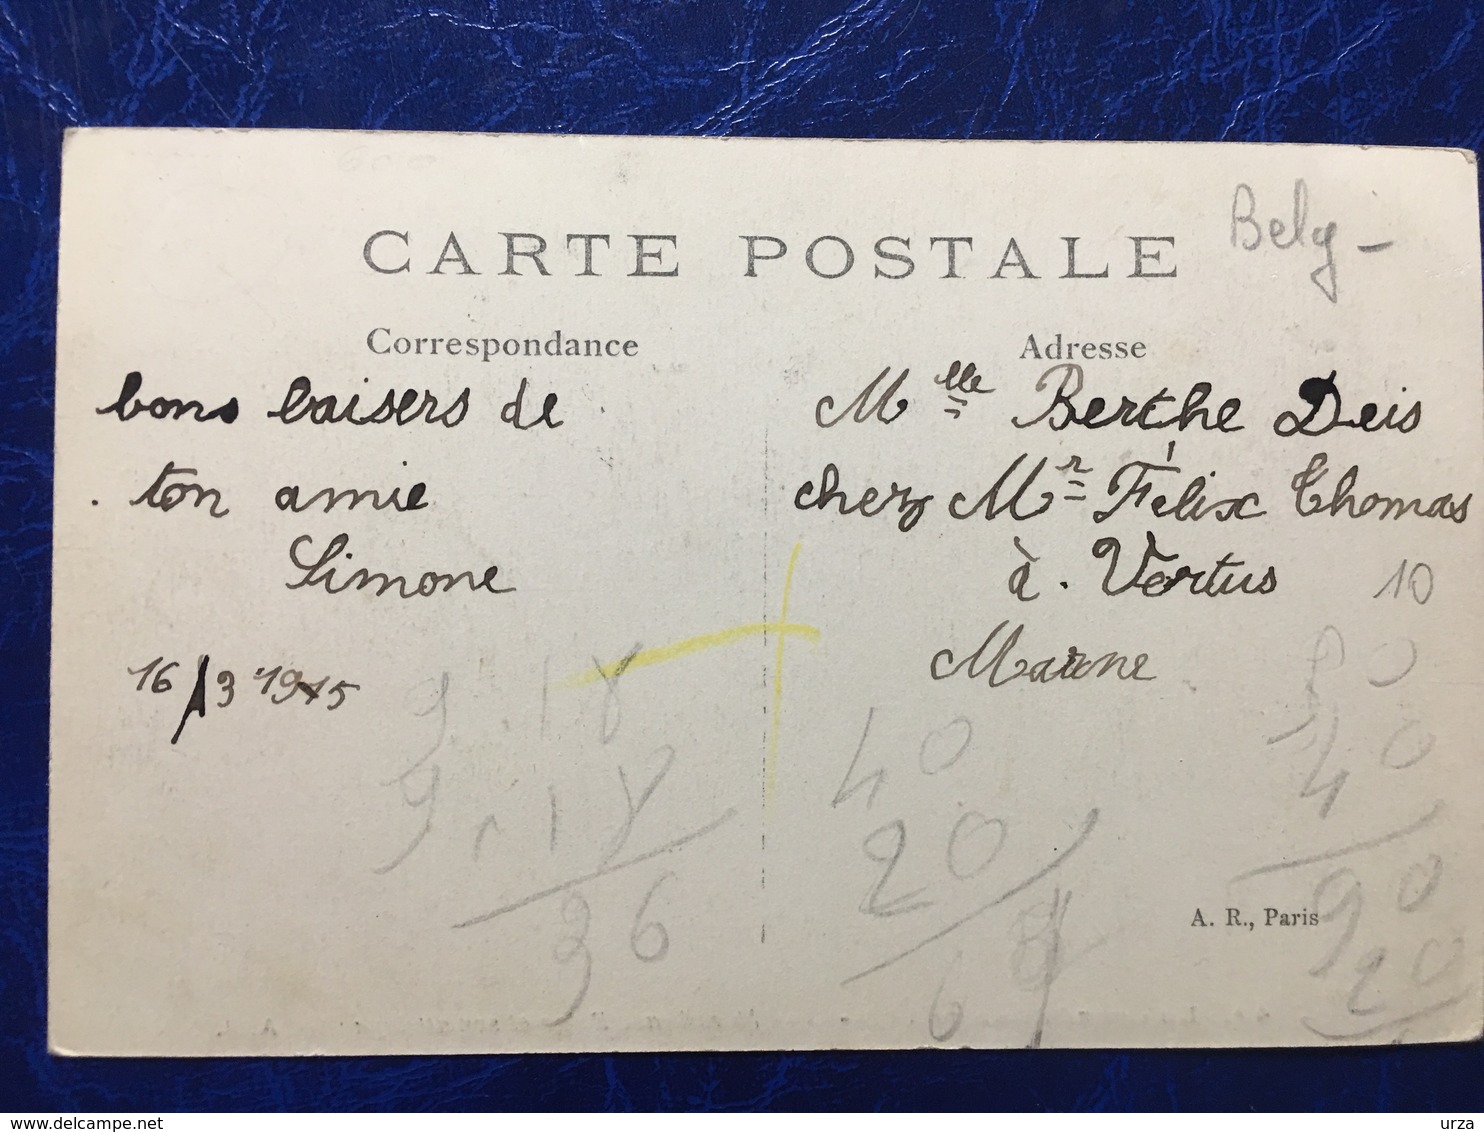 CARTE POSTALE
Belg -
Correspondance
bons baisers de
ton amie
Simone
16/3 1915
Adresse
Mlle Berthe Deis
chez Mr Félix Thomas
à. Vertus
Marne
10
9.18
9.18
36
40
20
40
90
20
A. R., Paris
www.delcampe.net
urza